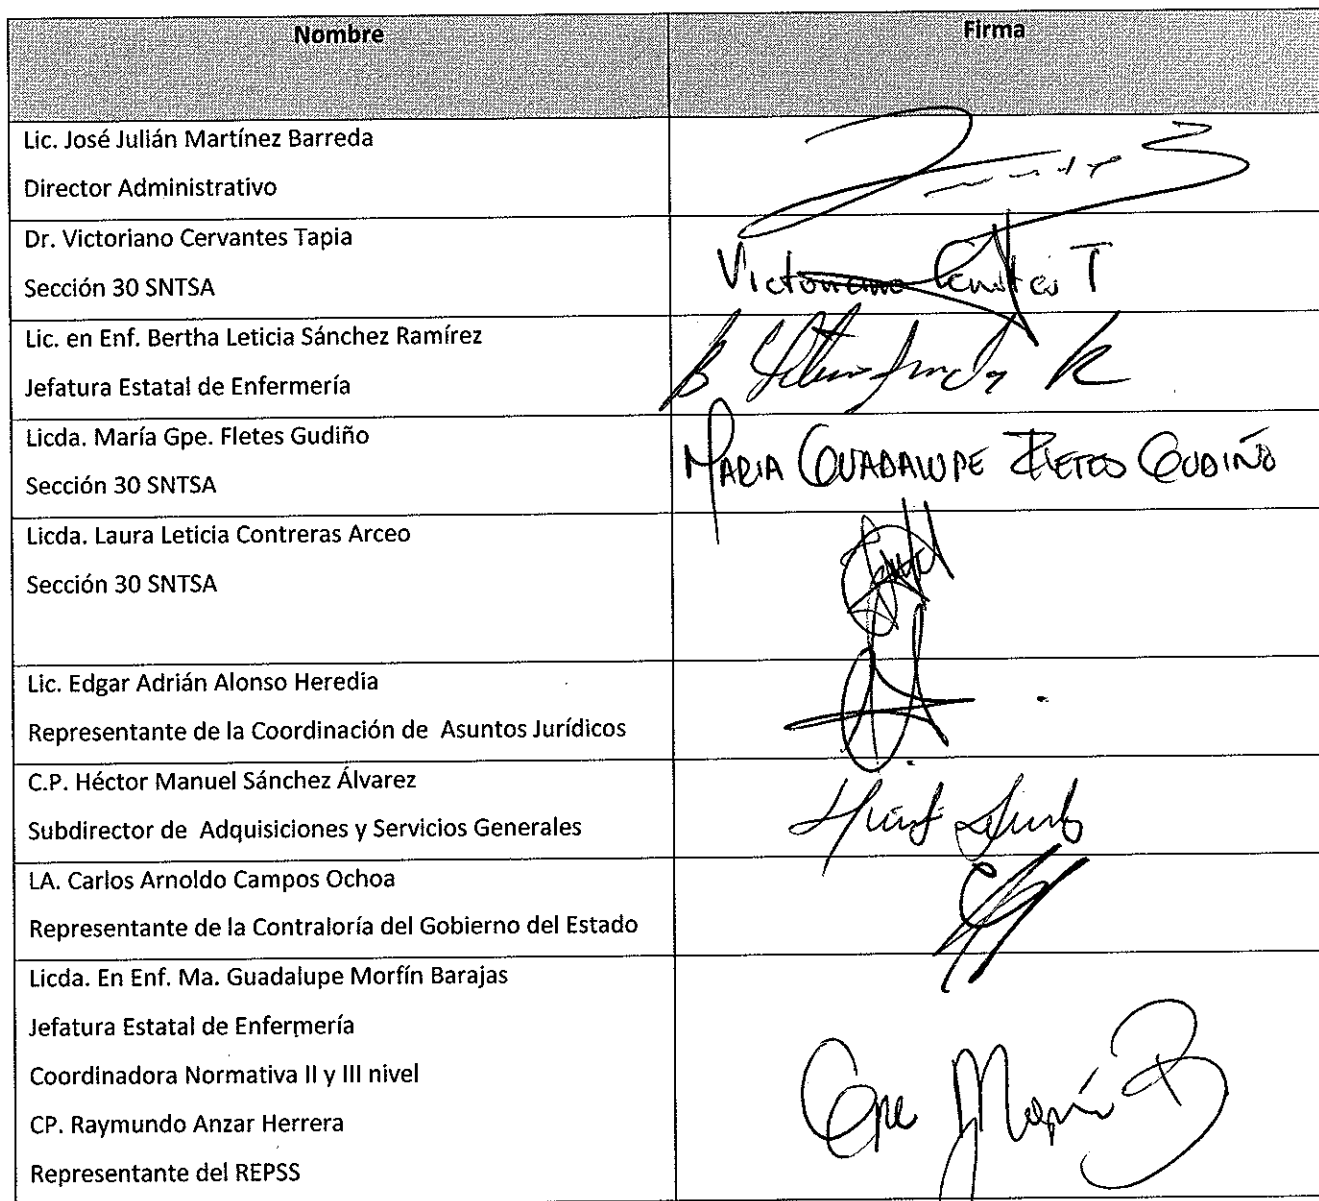 Nombre
Firma
Lic. José Julián Martínez Barreda
Director Administrativo
Dr. Victoriano Cervantes Tapia
Sección 30 SNTSA
Victoriano Cervantes T
Lic. en Enf. Bertha Leticia Sánchez Ramírez
Jefatura Estatal de Enfermería
Licda. María Gpe. Fletes Gudiño
Sección 30 SNTSA
MARIA GUADALUPE FLETES GUDIÑO
Licda. Laura Leticia Contreras Arceo
Sección 30 SNTSA
Lic. Edgar Adrián Alonso Heredia
Representante de la Coordinación de Asuntos Jurídicos
C.P. Héctor Manuel Sánchez Álvarez
Subdirector de Adquisiciones y Servicios Generales
LA. Carlos Arnoldo Campos Ochoa
Representante de la Contraloría del Gobierno del Estado
Licda. En Enf. Ma. Guadalupe Morfín Barajas
Jefatura Estatal de Enfermería
Coordinadora Normativa II y III nivel
Gpe Morfín B
CP. Raymundo Anzar Herrera
Representante del REPSS